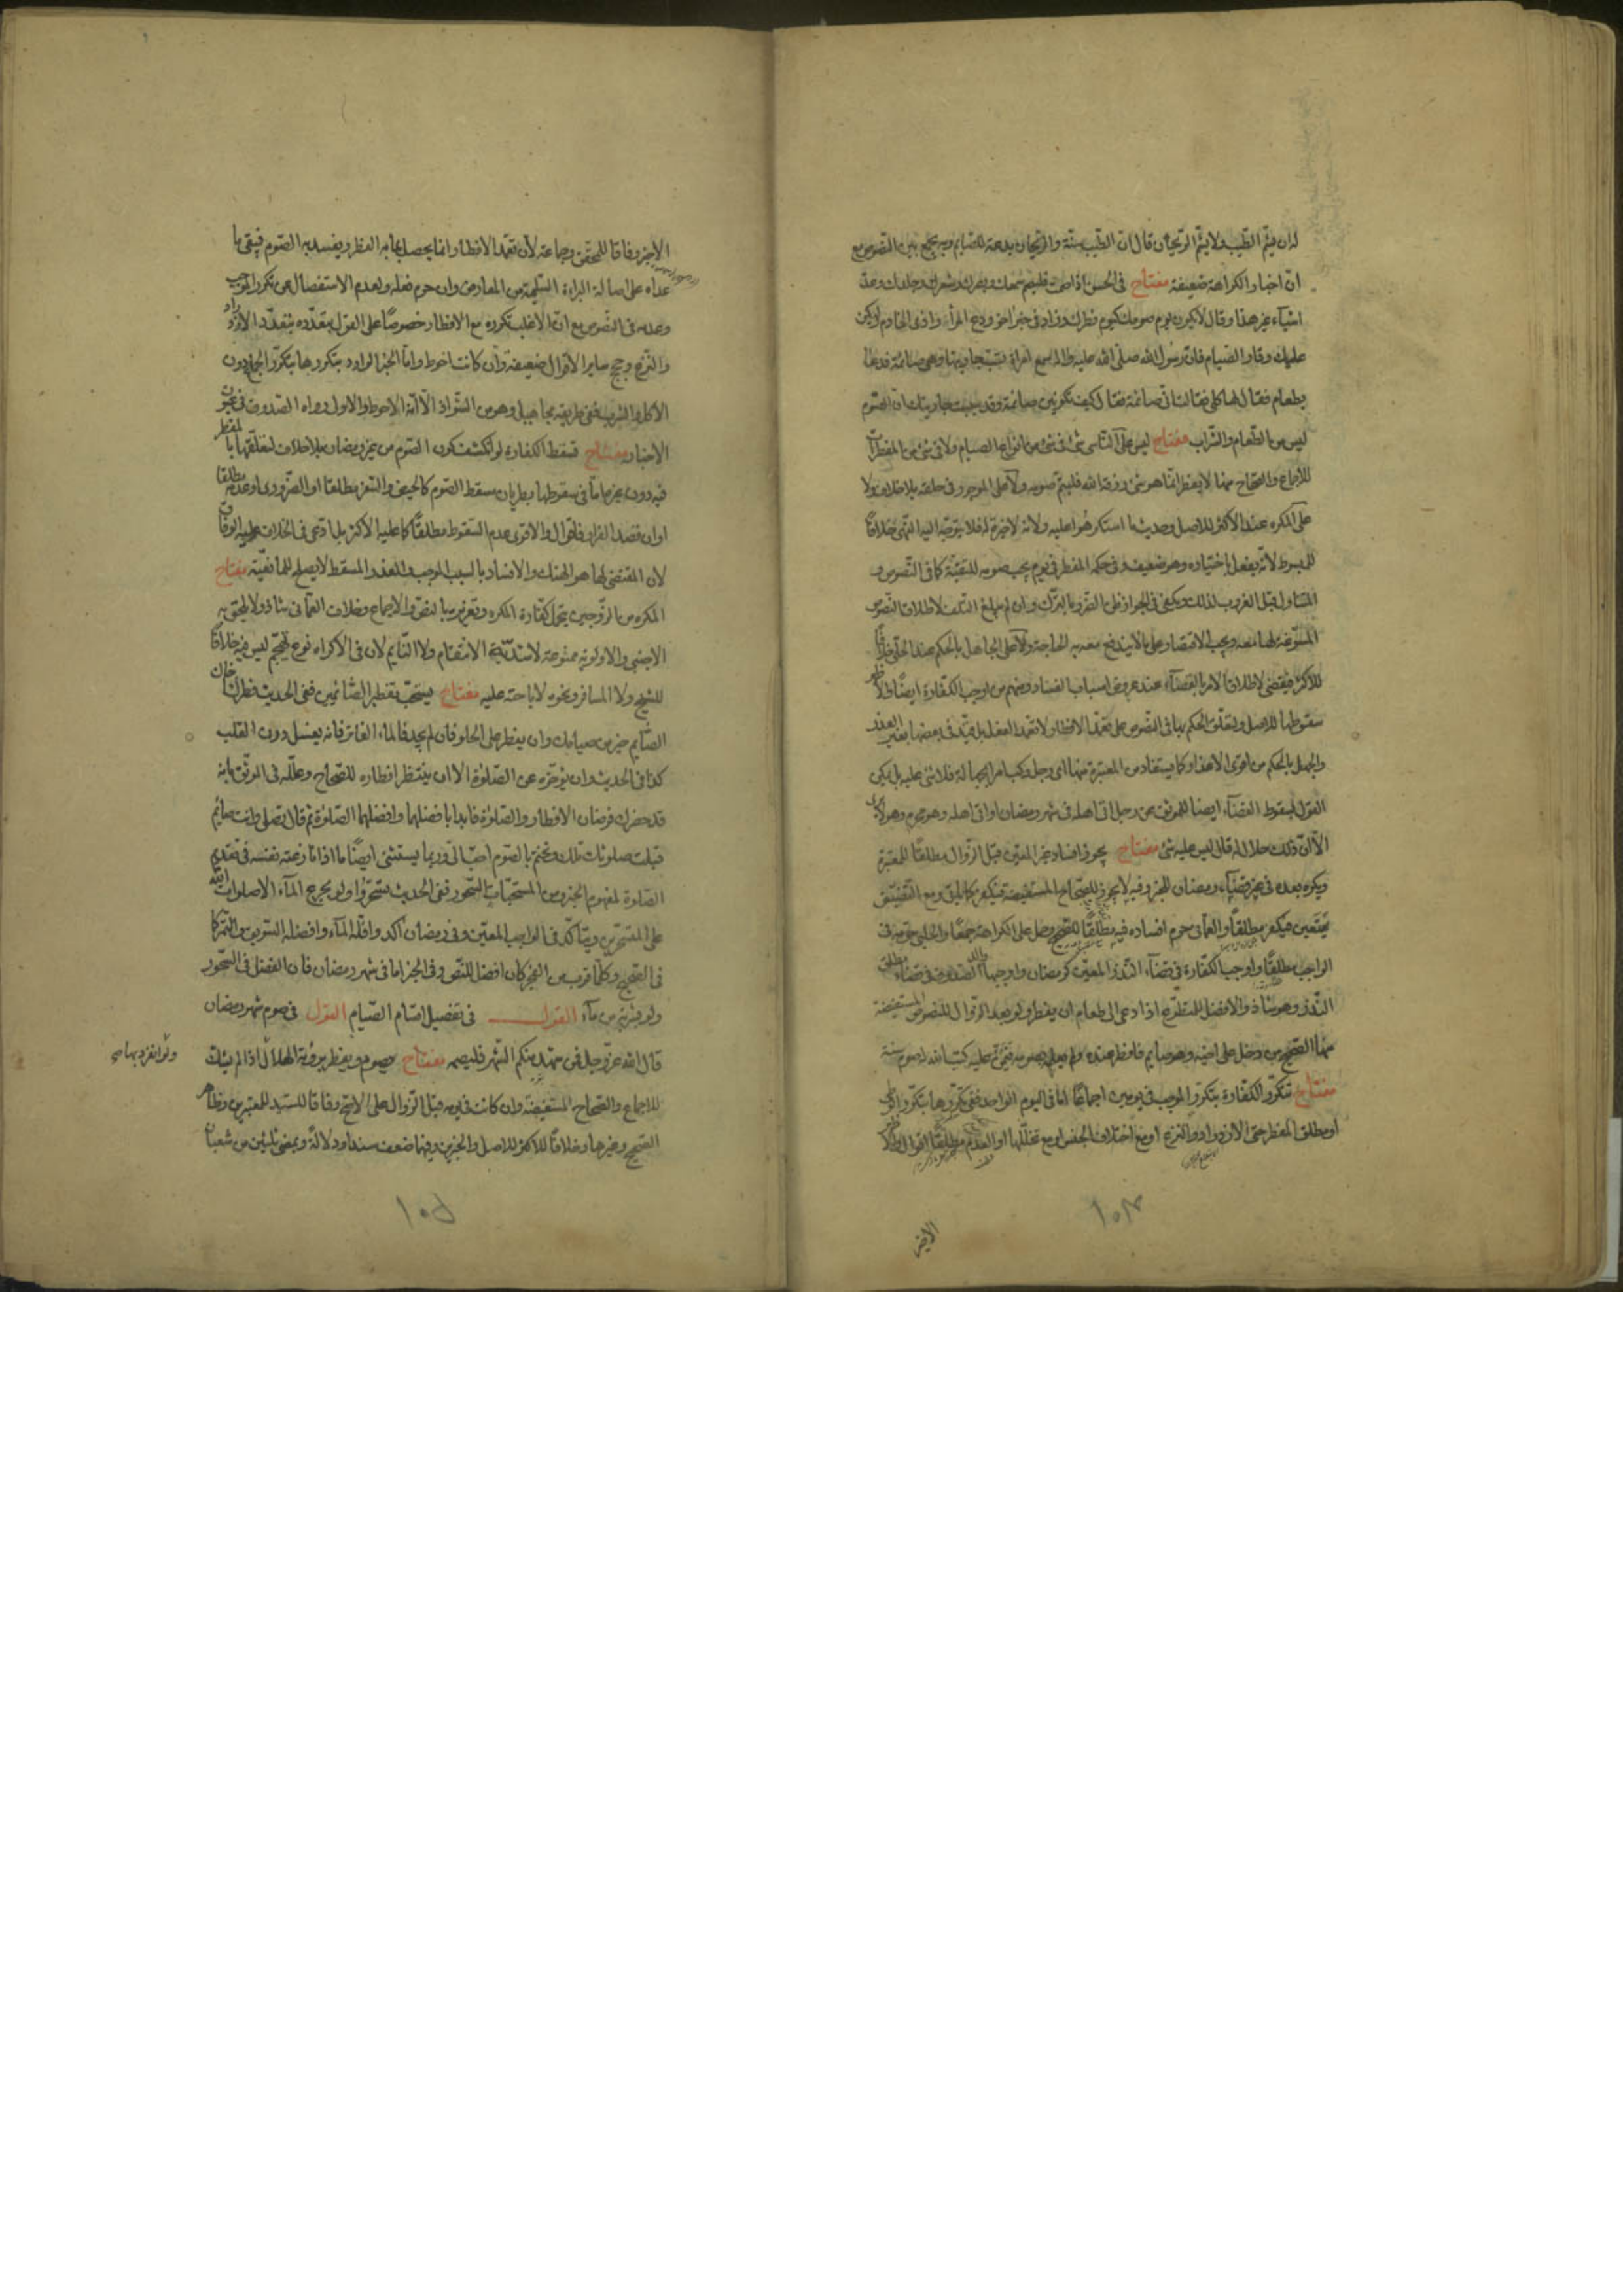 له ان يشم الطيب ولا يشم الريحان قال ان الطيب سنة والريحان بدعة للصائم وبه يجمع بين النصوص مع
ان اخبار الكراهة ضعيفة مفتاح في الحسن اذا صمت فليصم سمعك وبصرك وشعرك وجلدك وعدّ
اشياء غير هذا وقال لا يكون يوم صومك كيوم فطرك وزاد في خبر اخر ودع المراء واذى الخادم وليكن
عليك وقار الصيام فان رسول الله صلى الله عليه واله سمع امراة تسب جارية لها وهي صائمة فدعا
بطعام فقال لها كلي فقالت اني صائمة فقال كيف تكونين صائمة وقد سببت جاريتك ان الصوم
ليس من الطعام والشراب مفتاح ليس على الناسي شئ في شئ من انواع الصيام ولا في شئ من المفطرات
للاجماع والصحاح منها لا يفطر انما هو شئ رزقه الله فليتم صومه ولا على الموجور في حلقه بلا خلاف ولا
على المكره عند الاكثر للاصل وحديث ما استكرهوا عليه ولانه لا خيرة له فلا يتوجه اليه النهي خلافا
للمبسوط لانه يفعل باختياره وهو ضعيف وفي حكمه المفطر في يوم يجب صومه للتقية كما في النصوص و
المتناول قبل الغروب لذلك ويكفي في الجواز ظن الضرر بالترك وان لم يبلغ التلف لاطلاق النصوص
المسوغة لها معه ويجب الاقتصار على ما يندفع معه به الحاجة ولا على الجاهل بالحكم عند الحلي خلافا
للاكثر فيقضي لاطلاق الامر بالقضاء عند عروض اسباب الفساد ومنهم من اوجب الكفارة ايضا والاظهر
سقوطها للاصل ولتعلق الحكم بها في النصوص على تعمد الافطار لا تعمد الفعل بل قيد في بعضها بغير العذر
والجهل بالحكم من اقوى الاعذار وكما يستفاد من المعتبرة منها اي رجل ركب امرا بجهالة فلا شئ عليه بل يمكن
القول بسقوط القضاء ايضا للموثق عن رجل اتى اهله في شهر رمضان او اتى اهله وهو محرم وهو لا يرى
الا ان ذلك حلال له قال ليس عليه شئ مفتاح يجوز افساد غير المعين قبل الزوال مطلقا للمعتبرة
ويكره بعده في غير قضاء رمضان للخبر وفيه لا يجوز للصحاح المستفيضة فيكفر كما يأتي ومع التضيق
يتعين فيكفر مطلقا والعماني حرم افساده فيه مطلقا للصحيح وحمل على الكراهة جمعا والحلبي حرمه في
الواجب مطلقا واوجب الكفارة في قضاء النذر المعين كرمضان واوجبها الصدوق في قضاء مطلق
النذر وهو شاذ والافضل للمتطوع اذا دعي الى طعام ان يفطر ولو بعد الزوال للنصوص المستفيضة
منها الصحيح من دخل على اخيه وهو صايم فافطر عنده ولم يعلمه بصومه فيمن عليه كتب الله له صوم سنة
مفتاح تتكرر الكفارة بتكرر الموجب في يومين اجماعا اما في اليوم الواحد ففي تكررها بتكرر الوطي
او مطلق المفطر حتى الازدراد والنزع او مع اختلاف الجنس او مع تخللها او العدم مطلقا اقوال والاظهر
الاخير
الاخير وفاقا للمحقق وجماعة لان تعمد الافطار انما يحصل بما به الفطر ويفسد به الصوم فيبقى ما
عداه على اصالة البراءة السليمة من المعارض وان حرم فعله ولعدم الاستفصال عن تكرر الموجب
وعدمه في النصوص مع ان الاغلب تكرره مع الافطار خصوصا على القول بتعدده بتعدد الازدراد
والنزع وحجج ساير الاقوال ضعيفة وان كانت احوط واما الخبر الوارد بتكررها بتكرر الجماع دون
الاكل والشرب ففي طريقه مجاهيل وهو من الشواذ الا انه الاحوط والاول رواه الصدوق في عيون
الاخبار مفتاح تسقط الكفارة لو انكشف كون الصوم من غير رمضان بلا خلاف لتعلقها بالمفطر
فيه دون غيره اما في سقوطها بطريان مسقط الصوم كالحيض والسفر مطلقا او الضروري او عدمه مطلقا
او ان قصد الفرار فاقوال والاقوى عدم السقوط مطلقا كما عليه الاكثر بل ادعى في الخلاف عليه الوفاق
لان المقتضي لها هو الهتك والافساد بالسبب الموجب والعذر المسقط لا يصلح للمانعية مفتاح
المكره من الزوجين يتحمل كفارة المكره وتعزيره بالنص والاجماع وخلاف العماني شاذ ولا يلحق به
الاجنبي والاولوية ممنوعة لاشدية الانتقام ولا النايم لان في الاكراه نوع تهجم ليس فيه خلافا
للشيخ ولا المسافر ونحوه لاباحته عليه مفتاح يستحب تفطير الصائمين ففي الحديث فطرك اخاك
الصايم خير من صيامك وان يفطر على الحلو فان لم يجد فالماء الفاتر فانه يغسل درن القلب
كذا في الحديث وان يؤخره عن الصلوة الا ان ينتظر افطاره للصحاح وعلله في الموثق بانه
قد حضرك فرضان الافطار والصلوة فابدا بافضلهما وافضلهما الصلوة ثم قال تصلي وانت صايم
فتكتب صلوتك تلك وتختم بالصوم احب الي وربما يستثنى ايضا ما اذا نازعته نفسه في تقديم
الصلوة لمفهوم الخبر ومن المستحبات السحور ففي الحديث تسحروا ولو بجرع الماء الا صلوات الله
على المتسحرين ويتاكد في الواجب المعين وفي رمضان آكد واقله الماء وافضله السويق والتمر كما
في الصحيح وكلما قرب من الفجر كان افضل للنص وفي الخبر اما في شهر رمضان فان الفضل في السحور
ولو بشربة من ماء القول في تفصيل اقسام الصيام القول في صوم شهر رمضان
قال الله عز وجل فمن شهد منكم الشهر فليصمه مفتاح يصوم ويفطر برؤية الهلال اذا لم يشك
ولو انفرد بها صح
للاجماع والصحاح المستفيضة وان كانت في يومه قبل الزوال على الاصح وفاقا للسيد للمعتبرين وظاهر
الصحيح وغيرها وخلافا للاكثر للاصل والخبرين وفيهما ضعف سندا ودلالة وبمضي ثلثين من شعبان